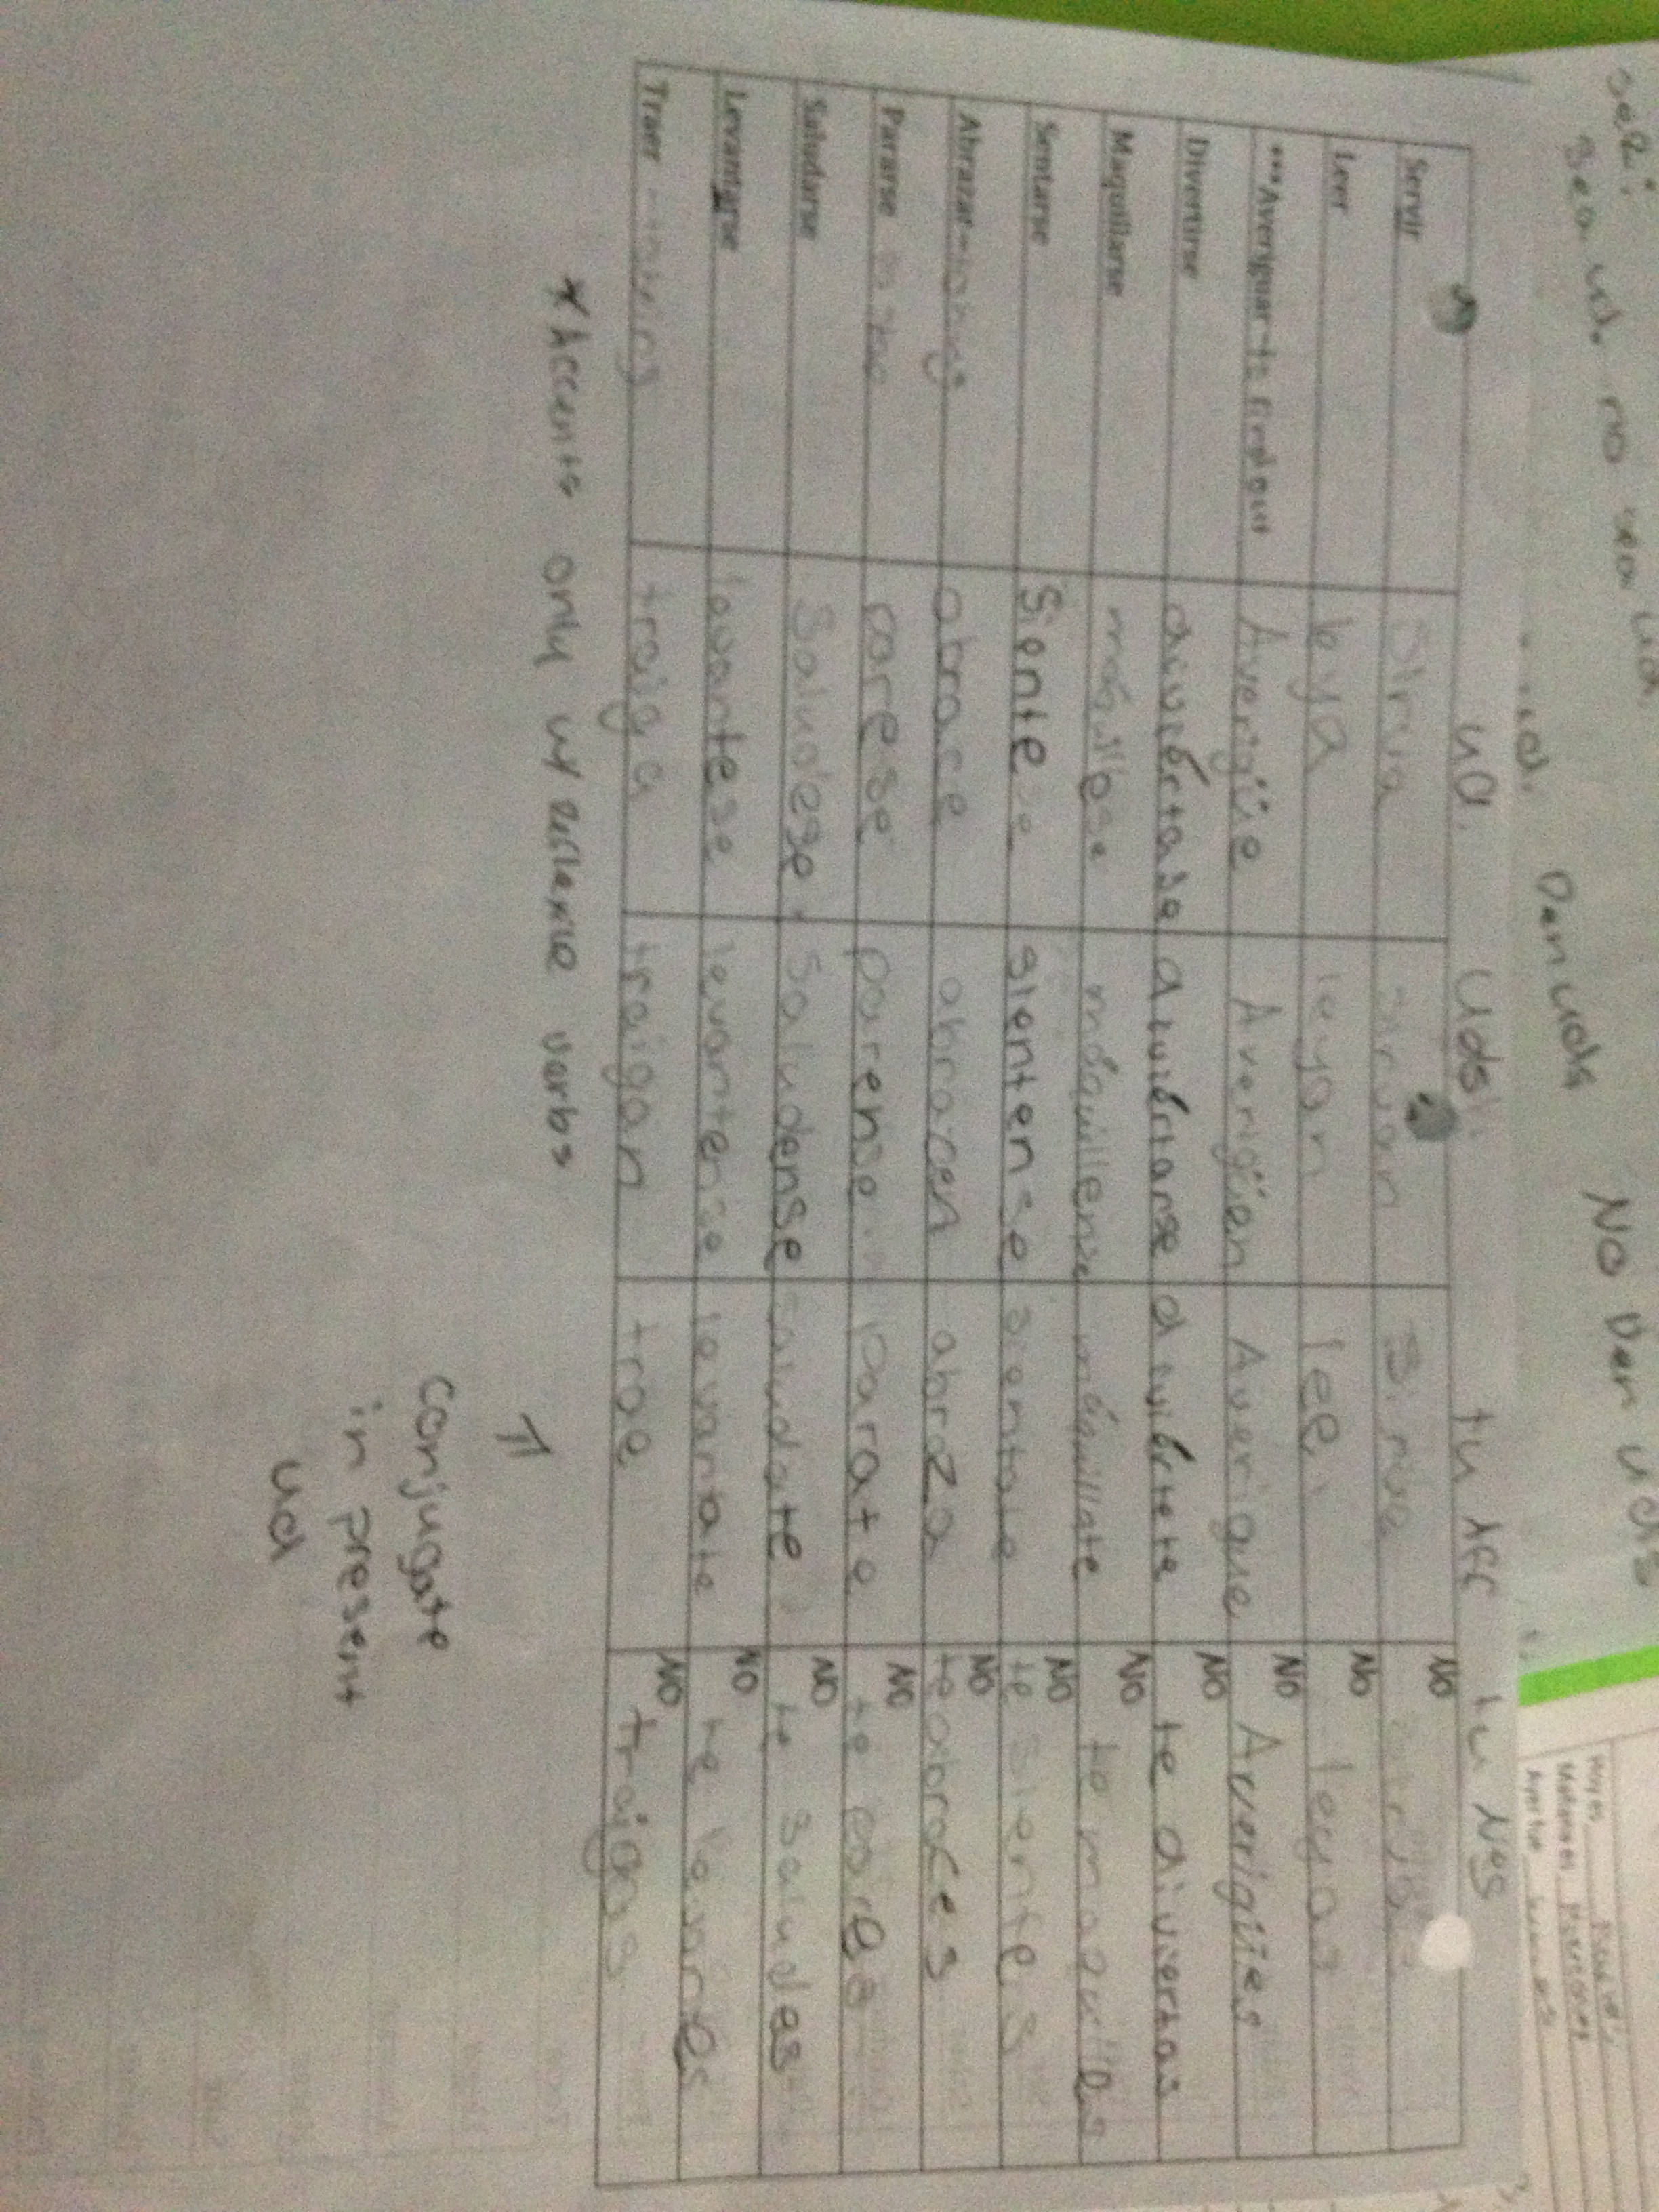 sea ud. no sea ud.
Den uds No Den uds
ud. uds tu Aff tu Neg
Servir sirva sirvan sirve NO
Leer leya leyan lee NO leyas
***Averiguar-to find out Averigüe Averigüen Averigue NO Averigües
Divertirse diviértase diviértanse diviérte te NO te diviertas
Maquillarse máquillese máquillense máquillate NO te maquilles
Sentarse Siente siéntense sientate NO te sientes
Abrazar abrace abracen abraza NO te abraces
Pararse parese parense parate NO te pares
Saludarse Saludese Saludense saludate NO te saludes
Levantarse levantese levantense levantate NO te levantes
Traer traiga traigan trae NO traigas
*Accents only w/ reflexive verbs
↑
conjugate
in present
ud